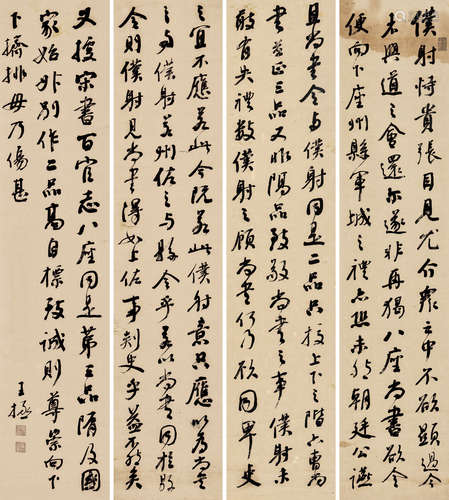 僕射恃貴張目見尤介衆之中不欲顯過今
者興道之會還尔遂非再猲八座尚書欲令
便向下座州縣軍城之禮亦恐未然朝廷公讌
且尚書令与僕射同是二品只校上下之階六曹尚
書並正三品又非隔品致敬尚書之事僕射未
敢有失禮數僕射之顧尚書何乃欲同卑吏
之宜不應若此今既若此僕射意只應以爲尚書
之与僕射若州佐之与縣令乎若以尚書同於縣
令則僕射見尚書得如上佐事刺史乎益不然矣
又據宋書百官志八座同是第三品隋及國
家始升別作二品高自標致誠則尊崇向下
下擠排毋乃傷甚
王拯